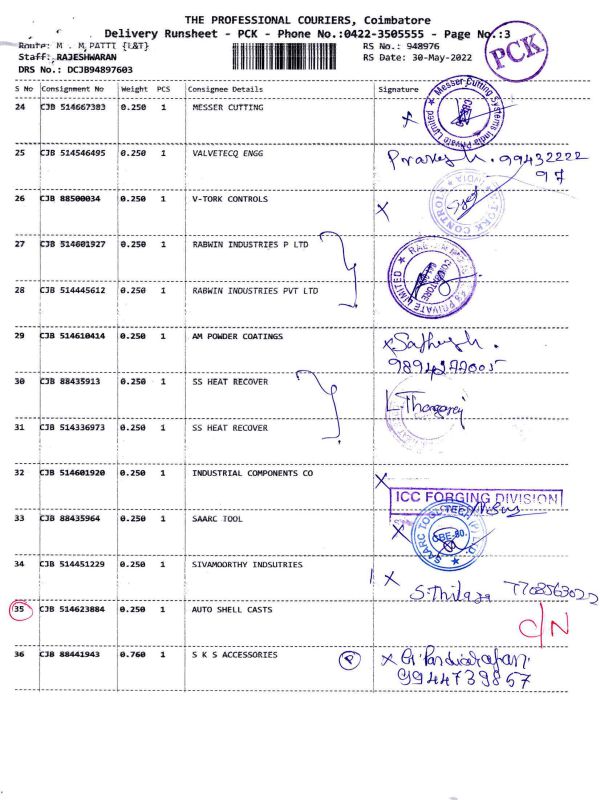 THE PROFESSIONAL COURIERS, Coimbatore
Delivery Runsheet - PCK - Phone No.:0422-3505555 - Page No.:3
Route: M . M.PATTI {L&T} RS No.: 948976
Staff: RAJESHWARAN RS Date: 30-May-2022
DRS No.: DCJB94897603
PCK
S No Consignment No Weight PCS Consignee Details Signature
24 CJB 514667383 0.250 1 MESSER CUTTING
Messer Cutting Systems India Private Limited
25 CJB 514546495 0.250 1 VALVETECQ ENGG 99432222
97
26 CJB 88500034 0.250 1 V-TORK CONTROLS X
27 CJB 514601927 0.250 1 RABWIN INDUSTRIES P LTD
PRIVATE LIMITED
28 CJB 514445612 0.250 1 RABWIN INDUSTRIES PVT LTD
29 CJB 514610414 0.250 1 AM POWDER COATINGS x Sathish.
30 CJB 88435913 0.250 1 SS HEAT RECOVER
L. Thangaraj
31 CJB 514336973 0.250 1 SS HEAT RECOVER
32 CJB 514601920 0.250 1 INDUSTRIAL COMPONENTS CO X
ICC FORGING DIVISION
33 CJB 88435964 0.250 1 SAARC TOOL X
SAARC TOOL TEEK (P) LTD.
CBE-80.
34 CJB 514451229 0.250 1 SIVAMOORTHY INDSUTRIES X
S. Thilaga
35 CJB 514623884 0.250 1 AUTO SHELL CASTS C/N
36 CJB 88441943 0.760 1 S K S ACCESSORIES P x G. Pandiarajan
9944739857